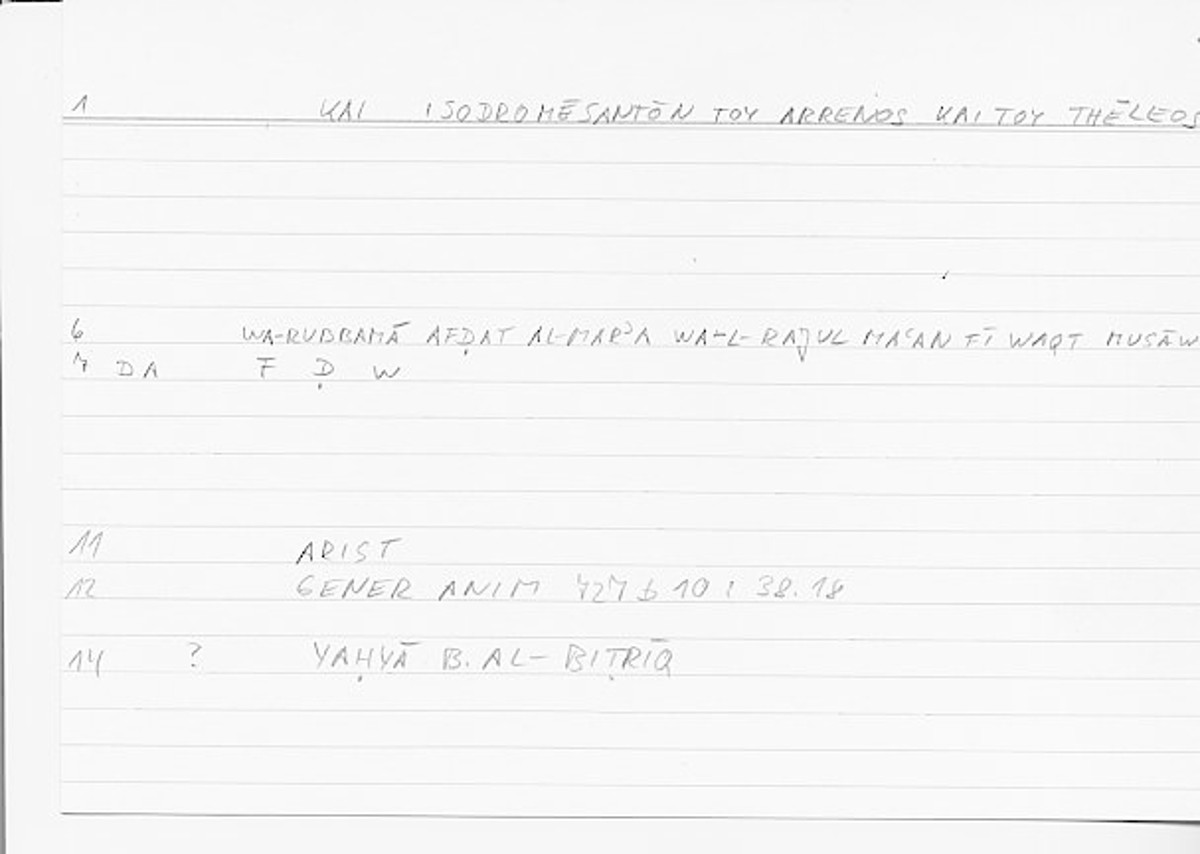 1 KAI ISODROMĒSANTŌN TOY ARRENOS KAI TOY THĒLEOS
6 WA-RUBBAMĀ AFḌAT AL-MARʾA WA-L-RAǦUL MAʿAN FĪ WAQT MUSĀW
7 DA F Ḍ W
11 ARIST
12 GENER ANIM 727 b 10 ; 38.18
14 ? YAḤYĀ B. AL-BIṬRĪQ